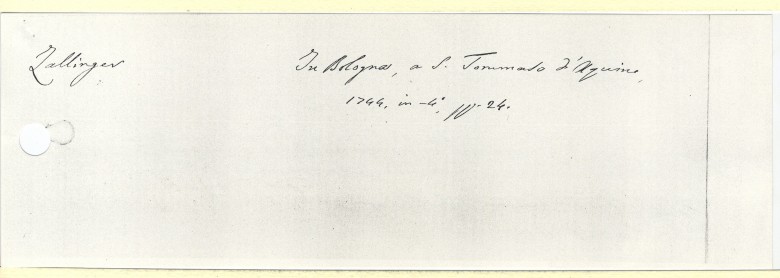 Zallinger
In Bologna, a S. Tommaso d'Aquino,
1744, in-4°, pp. 24.